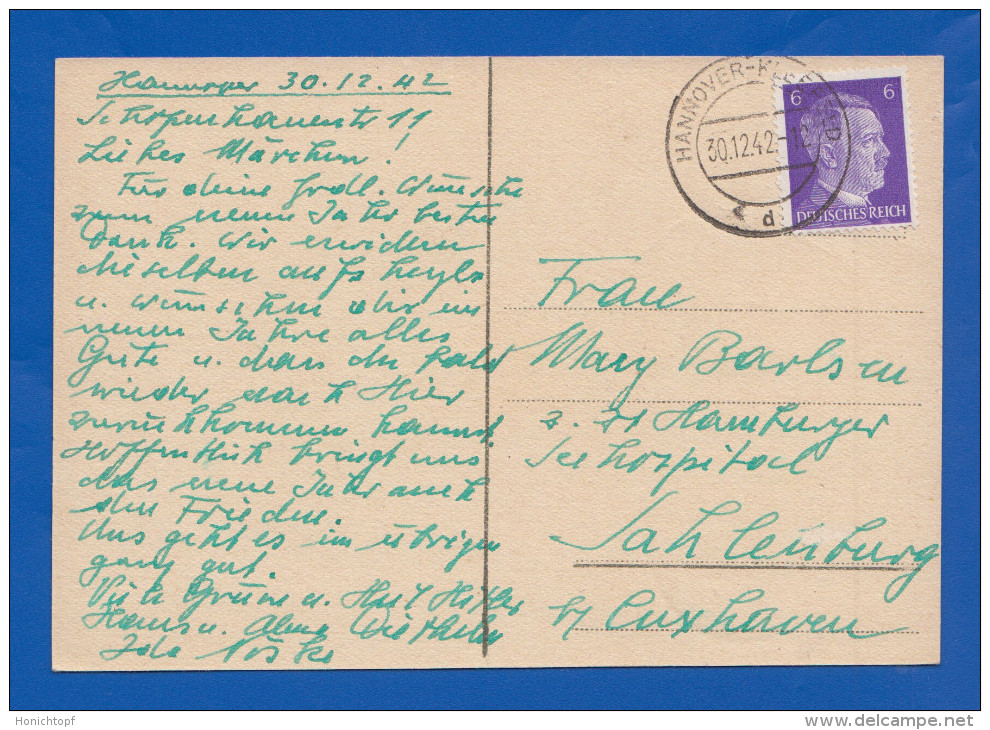 Hannover 30.12.42
Schopenhauerstr 11
Liebes Märchen!
Für deine frdl. Wünsche
zum neuen Jahr besten
Dank. Wir erwidern
dieselben aufs herzl.
u. wünschen dir im
neuen Jahre alles
Gute u. dass du bald
wieder nach Hier
zurückkommen kannst.
Hoffentlich bringt uns
das neue Jahr auch
den Frieden.
Uns geht es im übrigen
ganz gut.
Viele Grüsse u. Heil Hitler
Hans u. Alma
HANNOVER-KLEEFELD
30.12.42.-12
d
6 6
DEUTSCHES REICH
Frau
Mary Barlsen
z. Zt Hamburger
Seehospital
Sahlenburg
b/ Cuxhaven
Honichtopf
http://www.delcampe.net